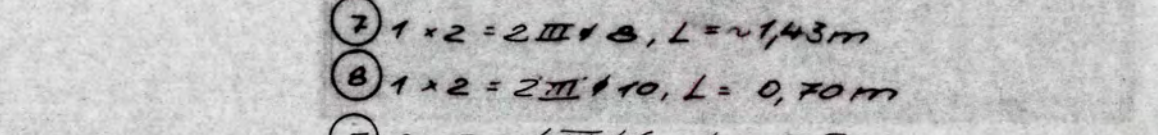 ⑦ 1 × 2 = 2 III ø 8, L = ~1,43m
⑧ 1 × 2 = 2 III ø 10, L = 0,70m